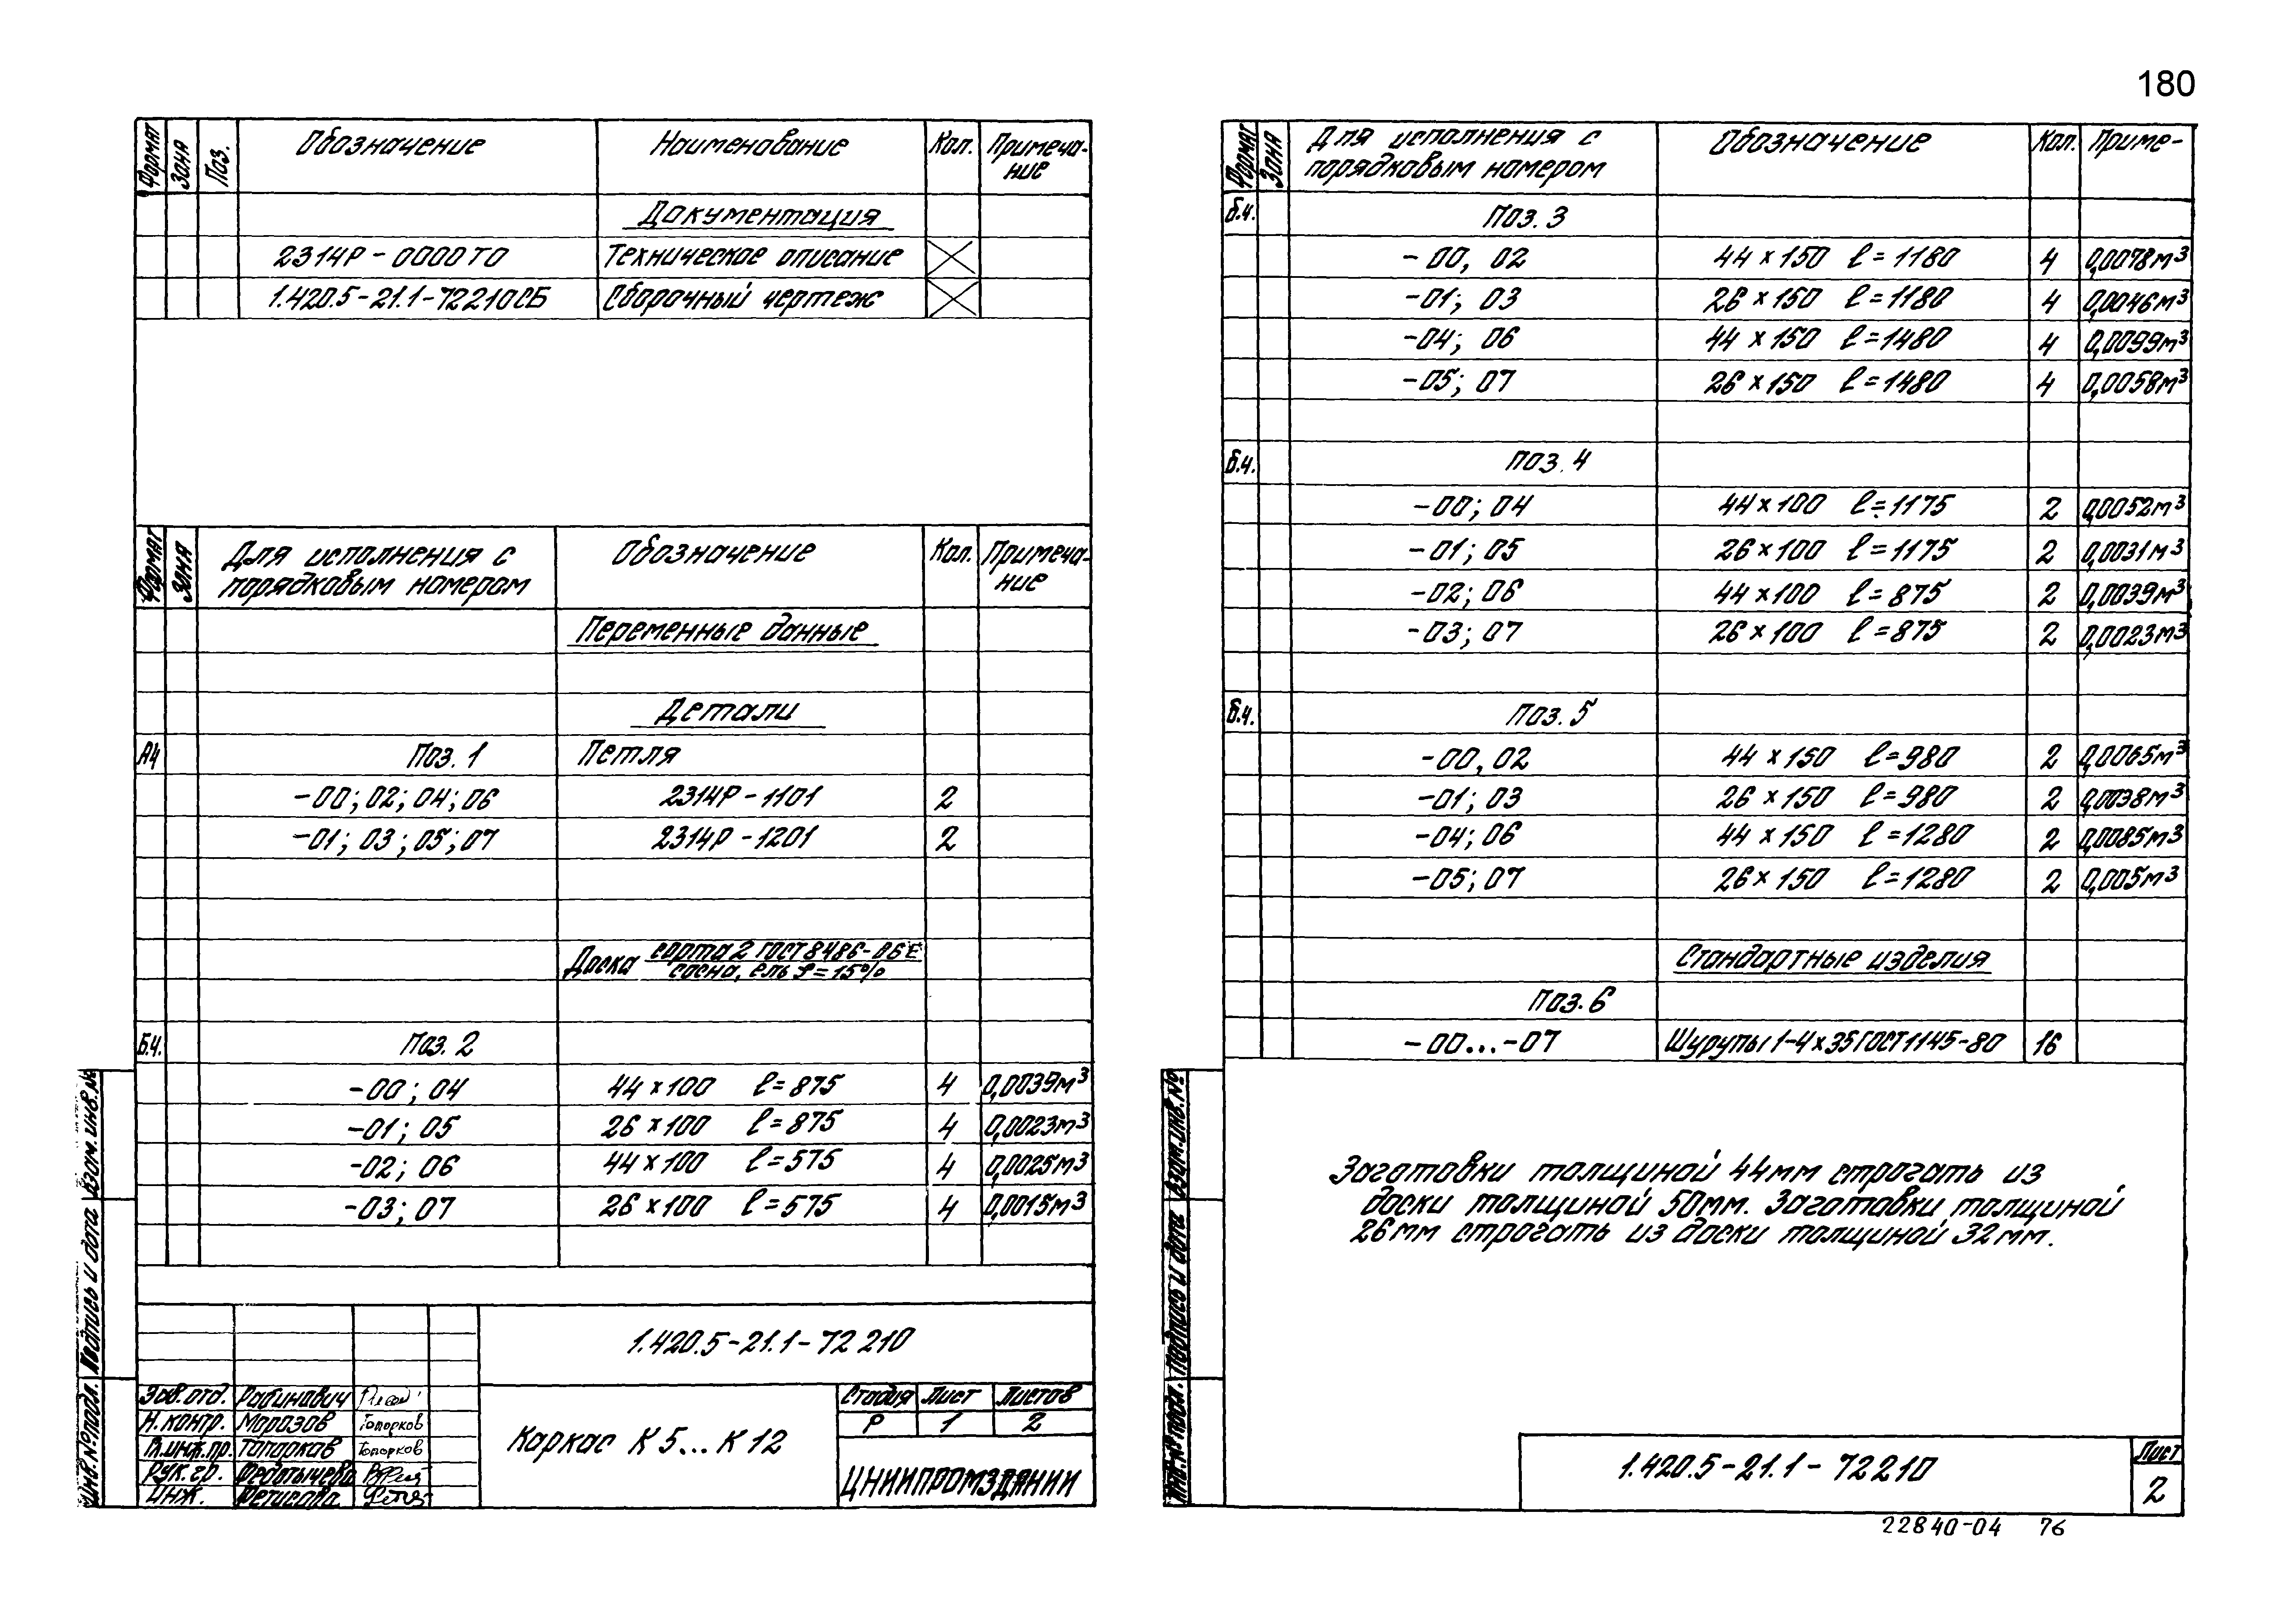 180
Формат Зона Поз. Обозначение Наименование Кол. Примеча-
ние
Документация
2314Р-0000ТО Техническое описание
1.420.5-21.1-72210СБ Сборочный чертеж
Формат Зона Для исполнения с Обозначение Кол. Примеча-
порядковым номером ние
Переменные данные
Детали
А4 Поз. 1 Петля
-00; 02; 04; 06 2314Р-1101 2
-01; 03; 05; 07 2314Р-1201 2
Доска сорта 2 ГОСТ 8486-86Е
сосна, ель φ=15%
Б.ч. Поз. 2
-00; 04 44×100 ℓ=875 4 0,0039м³
-01; 05 26×100 ℓ=875 4 0,0023м³
-02; 06 44×100 ℓ=575 4 0,0025м³
-03; 07 26×100 ℓ=575 4 0,0015м³
Инв.№подл. Подпись и дата Взам.инв.№
1.420.5-21.1-72 210
Зав.отд. Рабинович
Н.контр. Морозов Топорков
Гл.инж.пр. Топорков Топорков
Рук.гр. Федотычева
Инж. Фетисова
Каркас К5...К12
Стадия Лист Листов
Р 1 2
ЦНИИПРОМЗДАНИИ
Формат Зона Для исполнения с Обозначение Кол. Приме-
порядковым номером
Б.ч. Поз. 3
-00, 02 44×150 ℓ=1180 4 0,0078м³
-01; 03 26×150 ℓ=1180 4 0,0046м³
-04; 06 44×150 ℓ=1480 4 0,0099м³
-05; 07 26×150 ℓ=1480 4 0,0058м³
Б.ч. Поз. 4
-00; 04 44×100 ℓ=1175 2 0,0052м³
-01; 05 26×100 ℓ=1175 2 0,0031м³
-02; 06 44×100 ℓ=875 2 0,0039м³
-03; 07 26×100 ℓ=875 2 0,0023м³
Б.ч. Поз. 5
-00, 02 44×150 ℓ=980 2 0,0065м³
-01; 03 26×150 ℓ=980 2 0,0038м³
-04; 06 44×150 ℓ=1280 2 0,0085м³
-05; 07 26×150 ℓ=1280 2 0,005м³
Стандартные изделия
Поз. 6
-00...-07 Шурупы 1-4×35 ГОСТ 1145-80 16
Заготовки толщиной 44мм строгать из
доски толщиной 50мм. Заготовки толщиной
26мм строгать из доски толщиной 32мм.
Инв.№подл. Подпись и дата Взам.инв.№
1.420.5-21.1-72210
Лист
2
22840-04 76